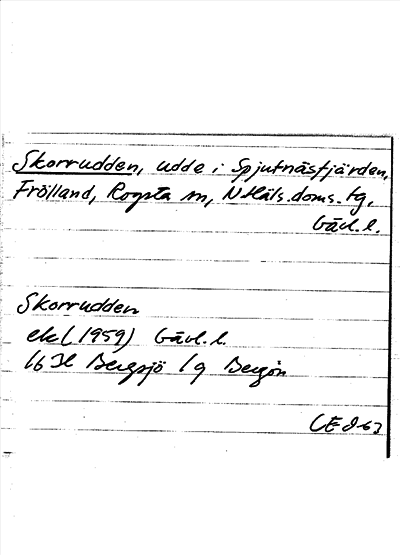 Skorrudden, udde i Spjutnäsfjärden,
Frölland, Rogsta sn, N Häls. doms. tg,
Gävl. l.
Skorrudden
ek (1959) Gävl. l.
16 H Bergsjö 1 g Bergön